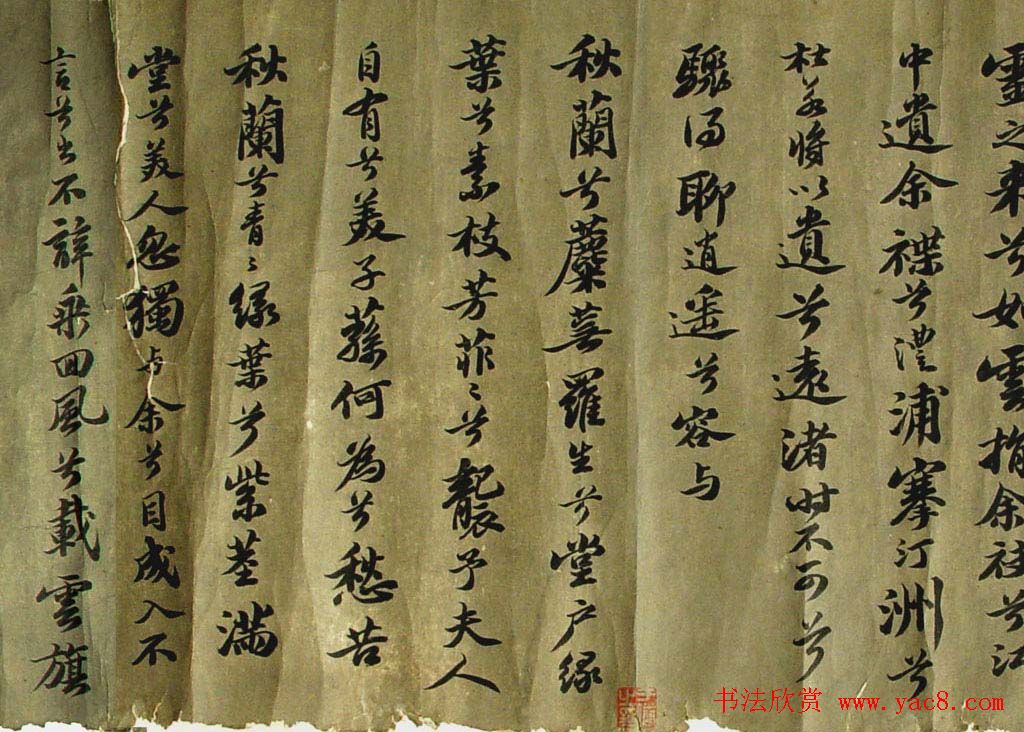 靈之來兮如雲捐余袂兮江
中遺余褋兮澧浦搴汀洲兮
杜若將以遺兮遠渚時不可兮
驟得聊逍遥兮容与
秋蘭兮蘪蕪羅生兮堂户緑
葉兮素枝芳菲〻兮襲予夫人
自有兮美子蓀何為兮愁苦
秋蘭兮青〻緑葉兮紫莖滿
堂兮美人忽獨与余兮目成入不
言兮出不辭乘回風兮載雲旗
书法欣赏 www.yac8.com